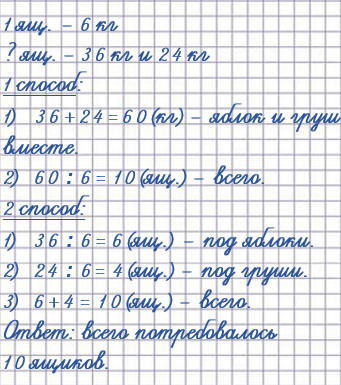 1 ящ. – 6 кг
? ящ. – 36 кг и 24 кг
1 способ:
1) 36+24=60(кг) – яблок и груш
вместе.
2) 60 : 6 = 10(ящ.) – всего.
2 способ:
1) 36 : 6 = 6(ящ.) – под яблоки.
2) 24 : 6 = 4(ящ.) – под груши.
3) 6+4 = 10(ящ.) – всего.
Ответ: всего потребовалось
10 ящиков.